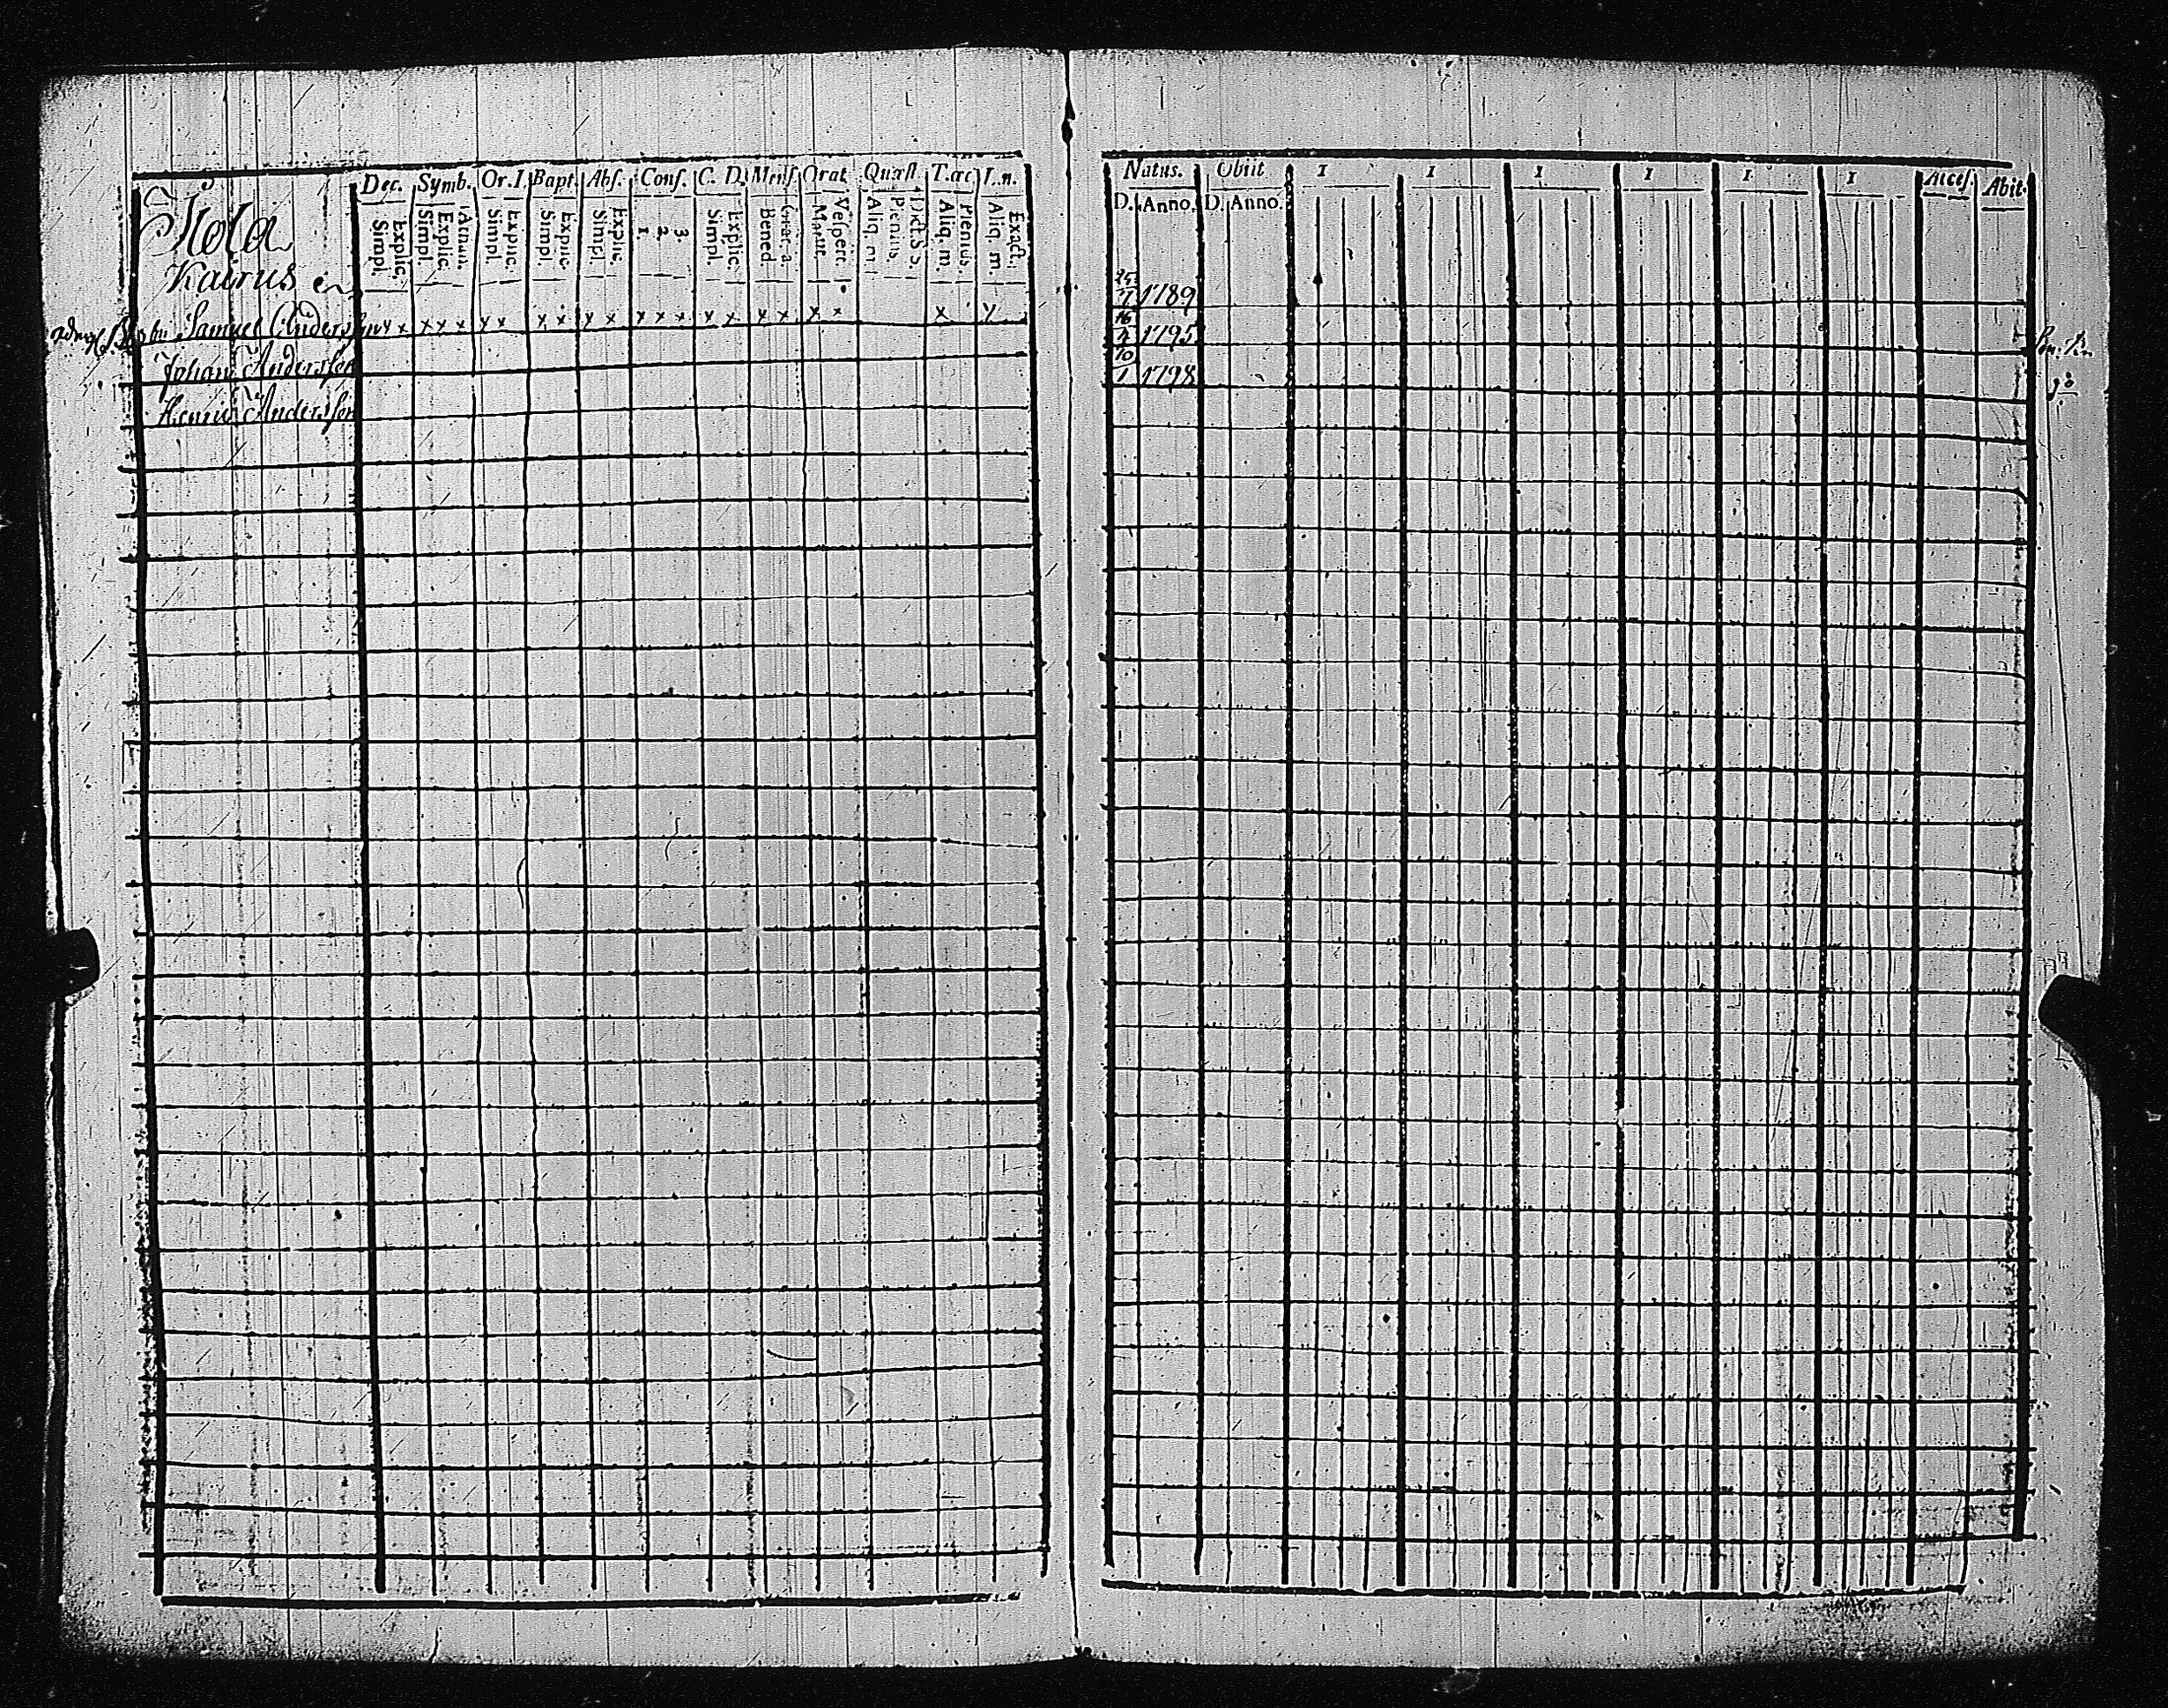 Dec. Symb. Or.I. Bapt. Abs. Conf. C. D. Mens. Orat. Quæst. T.œc I.n.
Simpl. Explic. Simpl. Explic. Athan. Simpl. Explic. Simpl. Explic. Simpl. Explic. 1. 2. 3. Simpl. Explic. Bened. Vespere. Aliq. m. Plenius. Aliq. m. Plenius. Aliq. m. Exact.
Kairus
Samuel Anders x x x x x x x x x x x x x x x x x x x x x
Johan Andersson
Henric Andersson
Natus. Obiit 1 1 1 1 1 1 Acces. Abit.
D. Anno. D. Anno.
25/7 1789
16/4 1795
10/1 1798